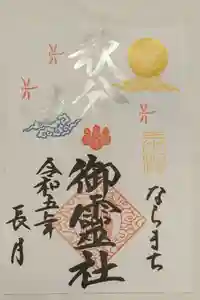 秋分
ならまち
御靈社
令和五年
長月